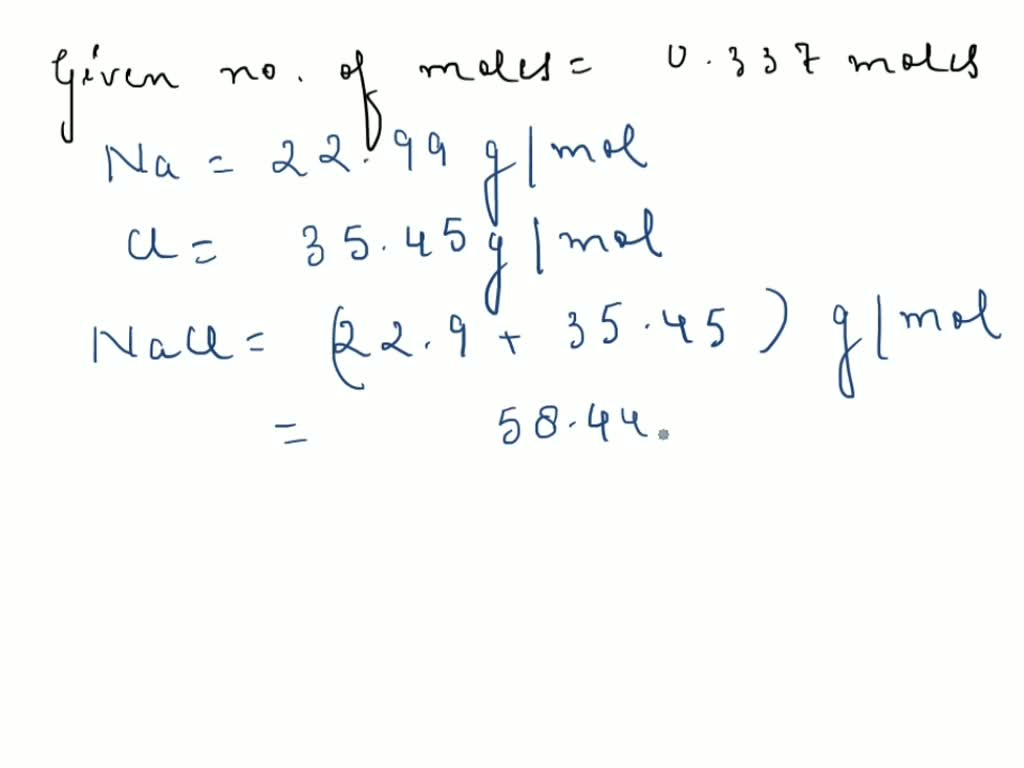 Given no. of moles = 0.337 moles
Na = 22.99 g/mol
Cl = 35.45 g/mol
NaCl = (22.9 + 35.45) g/mol
= 58.44.